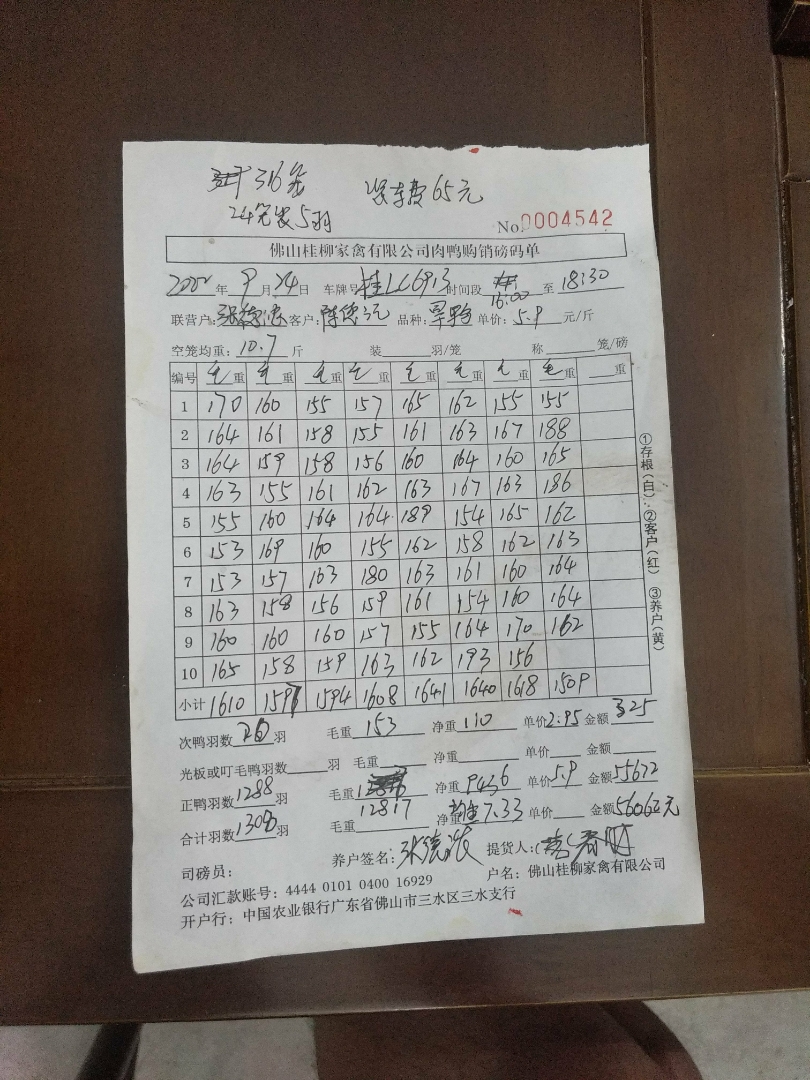 316笼 收车费65元
24笼装5羽
No.0004542
佛山桂柳家禽有限公司肉鸭购销磅码单
年9月24日 车牌号桂LC6913时间段 16:00 至 18:30
联营户: 客户: 品种: 单价:5.9元/斤
空笼均重:10.7斤 装 羽/笼 称 笼/磅
编号 毛重 毛重 毛重 毛重 毛重 毛重 毛重 毛重 重
1 170 160 155 157 165 162 155 155
2 164 161 158 155 161 163 167 188
3 164 159 158 156 160 164 160 165
4 163 155 161 162 163 167 163 186
5 155 160 164 164 189 154 165 162
6 153 169 160 155 162 158 162 163
7 153 157 163 180 163 161 160 164
8 163 158 156 159 161 154 160 164
9 160 160 160 157 155 164 170 162
10 165 158 159 163 162 193 156
小计 1610 1597 1594 1608 1641 1640 1618 1509
次鸭羽数20羽 毛重153 净重110 单价2.95 金额325
光板或叮毛鸭羽数 羽 毛重 净重 单价 金额
正鸭羽数1288羽 毛重 净重9436 单价5.9 金额55672
合计羽数1308羽 毛重12817 净重 7.33 单价 金额56062元
司磅员: 养户签名: 提货人:
公司汇款账号:4444 0101 0400 16929 户名:佛山桂柳家禽有限公司
开户行:中国农业银行广东省佛山市三水区三水支行
①存根(白)②客户(红) ③养户(黄)